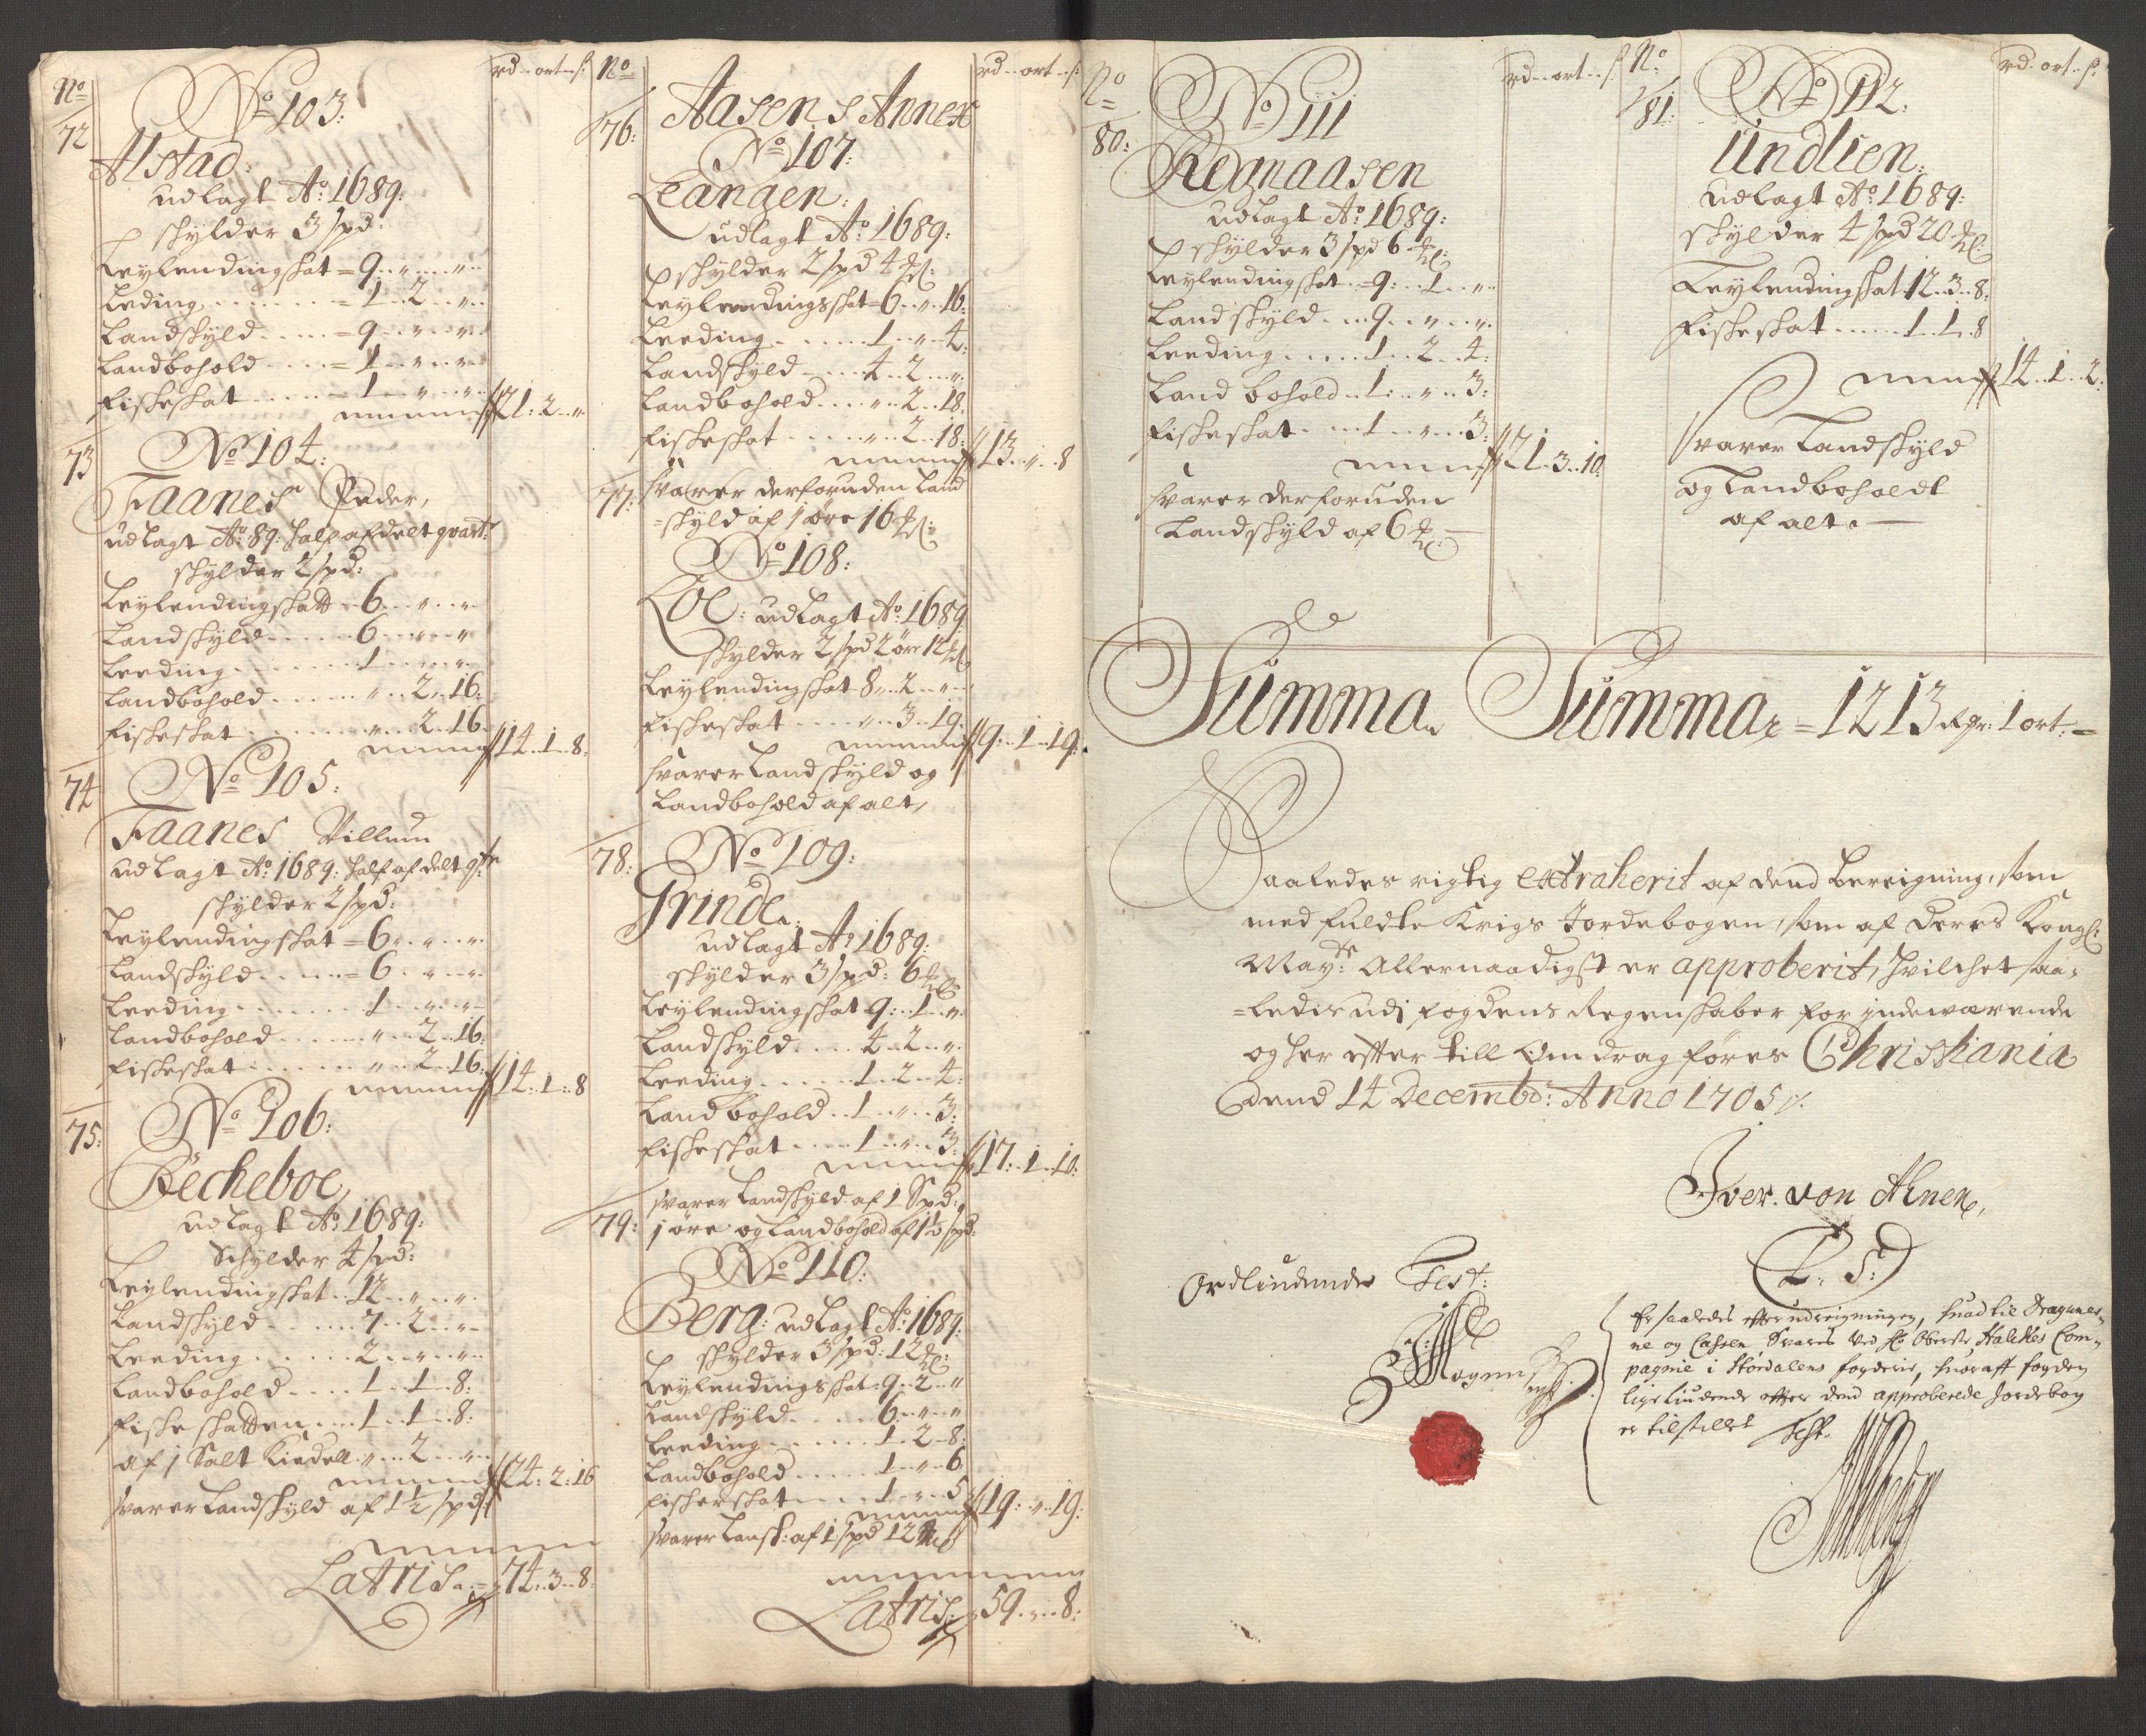 No
rd ort s:
72
No 103:
Alstad:
udlagt Ao: 1689:
schylder 3 spd:
Leylendingschat = 9 .. „ .. „
Leding = 1 .. 2 .. „
Landschyld = 9 .. „ .. „
Landbohold = 1 .. „ .. „
Fischeschat 1 .. „ .. „
21: 2 .. „
73
No 104:
Faanes Peder,
udlagt Ao: 89: half afdelt qvart:
schylder 2 spd:
Leylendingschatt 6 .. „ .. „
Landschyld 6 .. „ .. „
Leeding 1 .. „ .. „
Landbohold „ .. 2 .. 16:
Fischeschat „ .. 2 .. 16
14 .. 1 .. 8:
74
No 105:
Faanes Villum
udlagt Ao: 1689: half afdelt
schylder 2 spd:
Leylendingschat = 6 .. „ .. „
Landschyld = 6 .. „ .. „
Leeding 1 .. „ .. „
Landbohold „ .. 2 .. 16:
Fischeschat „ .. 2 .. 16:
14 .. 1 .. 8
75:
No 106:
Hecheboe,
udlagt Ao: 1689:
Schylder 4 spd:
Leylendingschat 12 .. „ .. „
Landschyld 7 .. 2 .. „
Leeding 2 .. „ .. „
Landbohold 1 .. 1 .. 8:
Fischeschatten 1 .. 1 .. 8:
af 1 Salt Kiedell „ .. 2 .. „
24: 2: 16
svarer Landschyld af 1½ spd:
Latris = 74 .. 3 .. 8:
No
rd ort s:
76:
Aasens Annex
No 107:
Leangen:
udlagt Ao: 1689:
schylder 2 spd 4
Leylendingsschat 6 .. „ .. 16:
Leeding 1 .. „ .. 4:
Landschyld 4 .. 2 .. „
Landbohold „ .. 2 .. 18.
Fischeschat „ .. 2 .. 18:
13 .. „ .. 8
77:
svarer derforuden Land
=schyld af 1 øre 16
No 108:
Loe: udlagt Ao: 1689
schylder 2 spd 2 øre 12
Leylendingschat 8 .. 2 .. „
Fischeschat „ .. 3 .. 19:
9: 1 .. 19:
svarer Landschyld og
Landbohold af alt,
78:
No 109:
Grinde:
udlagt Ao 1689:
schylder 3 spd: 6
Leylendingschat 9: 1 .. „
Landschyld 4 .. 2 .. „
Leeding 1 .. 2 .. 4:
Landbohold 1 .. „ .. 3:
Fischeschat 1 .. „ .. 3:
17: 1 .. 10:
svarer Landschyld af 1 Spd:
79:
1 øre og Landbohold af 1½ spd:
No 110:
Berg: udlagt Ao: 1689:
schylder 3 spd: 12
Leylendingsschat 9 .. 2 .. „
Landschyld 6 .. „ .. „
Leeding 1 .. 2 .. 8:
Landbohold 1 .. „ .. 6:
Fischerschat 1 .. „ .. 5
19: „ .. 19:
svarer Landsk: af 1 spd 12
Latris: 59 .. „ .. 8:
No
rd ort s:
80:
No 111
Regnaasen
udlagt Ao: 1689:
schylder 3 spd 6
Leylendingschat 9: 1 .. „
Landschyld 9 .. „ .. „
Leeding 1 .. 2 .. 4:
Landbohold 1: „ .. 3:
Fischeschat 1 .. „ .. 3:
21 .. 3 .. 10:
svarer derforuden
Landschyld af 6
No
rd ort s:
81:
No 112:
Undlien:
udlagt Ao: 1689:
schylder 4 spd 20
Leylendingschat 12 .. 3 .. 8:
Fischeschat 1 .. 1 .. 8
14 .. 1 .. 2:
svarer Landschyld
og Landboholdt
af alt.
Summa Summar = 1213 Rdr: 1 ort:
Saaledes rigtig extraherit af dend Bereigning, som
medfuldte Krigs Jordebogen, som af Deres Kongl:
Mayts: Allernaadigst er approberit, hvilchet saa=
=ledis udj fogdens Regenschaber for jndeværende
og her efter till Omdrag føres Christiania
dend 14 Decembr: Anno 1705
Iver von Ahnen,
L: S:
Ordliudende Test:
Er saaledes efter udreigningen, huad til Dragunern-
ne og Cassen, Svares ved Hr Oberste Halckes Com-
pagnie i Stordalens fogderie, huoraff fogden
ligeliudende efter dend approberede Jordebog
er tilstillet Test.